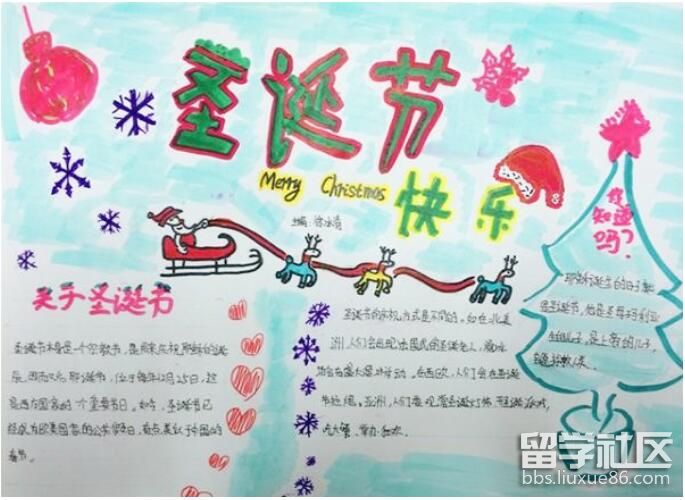 圣诞节
Merry Christmas 快乐
主编:
你
知道
吗?
关于圣诞节
圣诞节本身是一个宗教节,是用来庆祝耶稣的诞
辰,因而又名耶诞节,位于每年12月25日,这
是西方国家的一个重要节日。如今,圣诞节已
经成为欧美国家的公共假日,有点类似于中国的
春节。
圣诞节的庆祝方式是不同的。如在北美
洲,人们会 圣诞老人,
会有盛大 活动。在西欧,人们会在圣诞
节 亚洲,人们 圣诞灯饰、圣诞游戏,
吃大餐、举办狂欢。
耶稣诞生的日子就
是圣诞节,他是圣母玛利亚
的儿子,是上帝的儿子,
留学社区
bbs.liuxue86.com